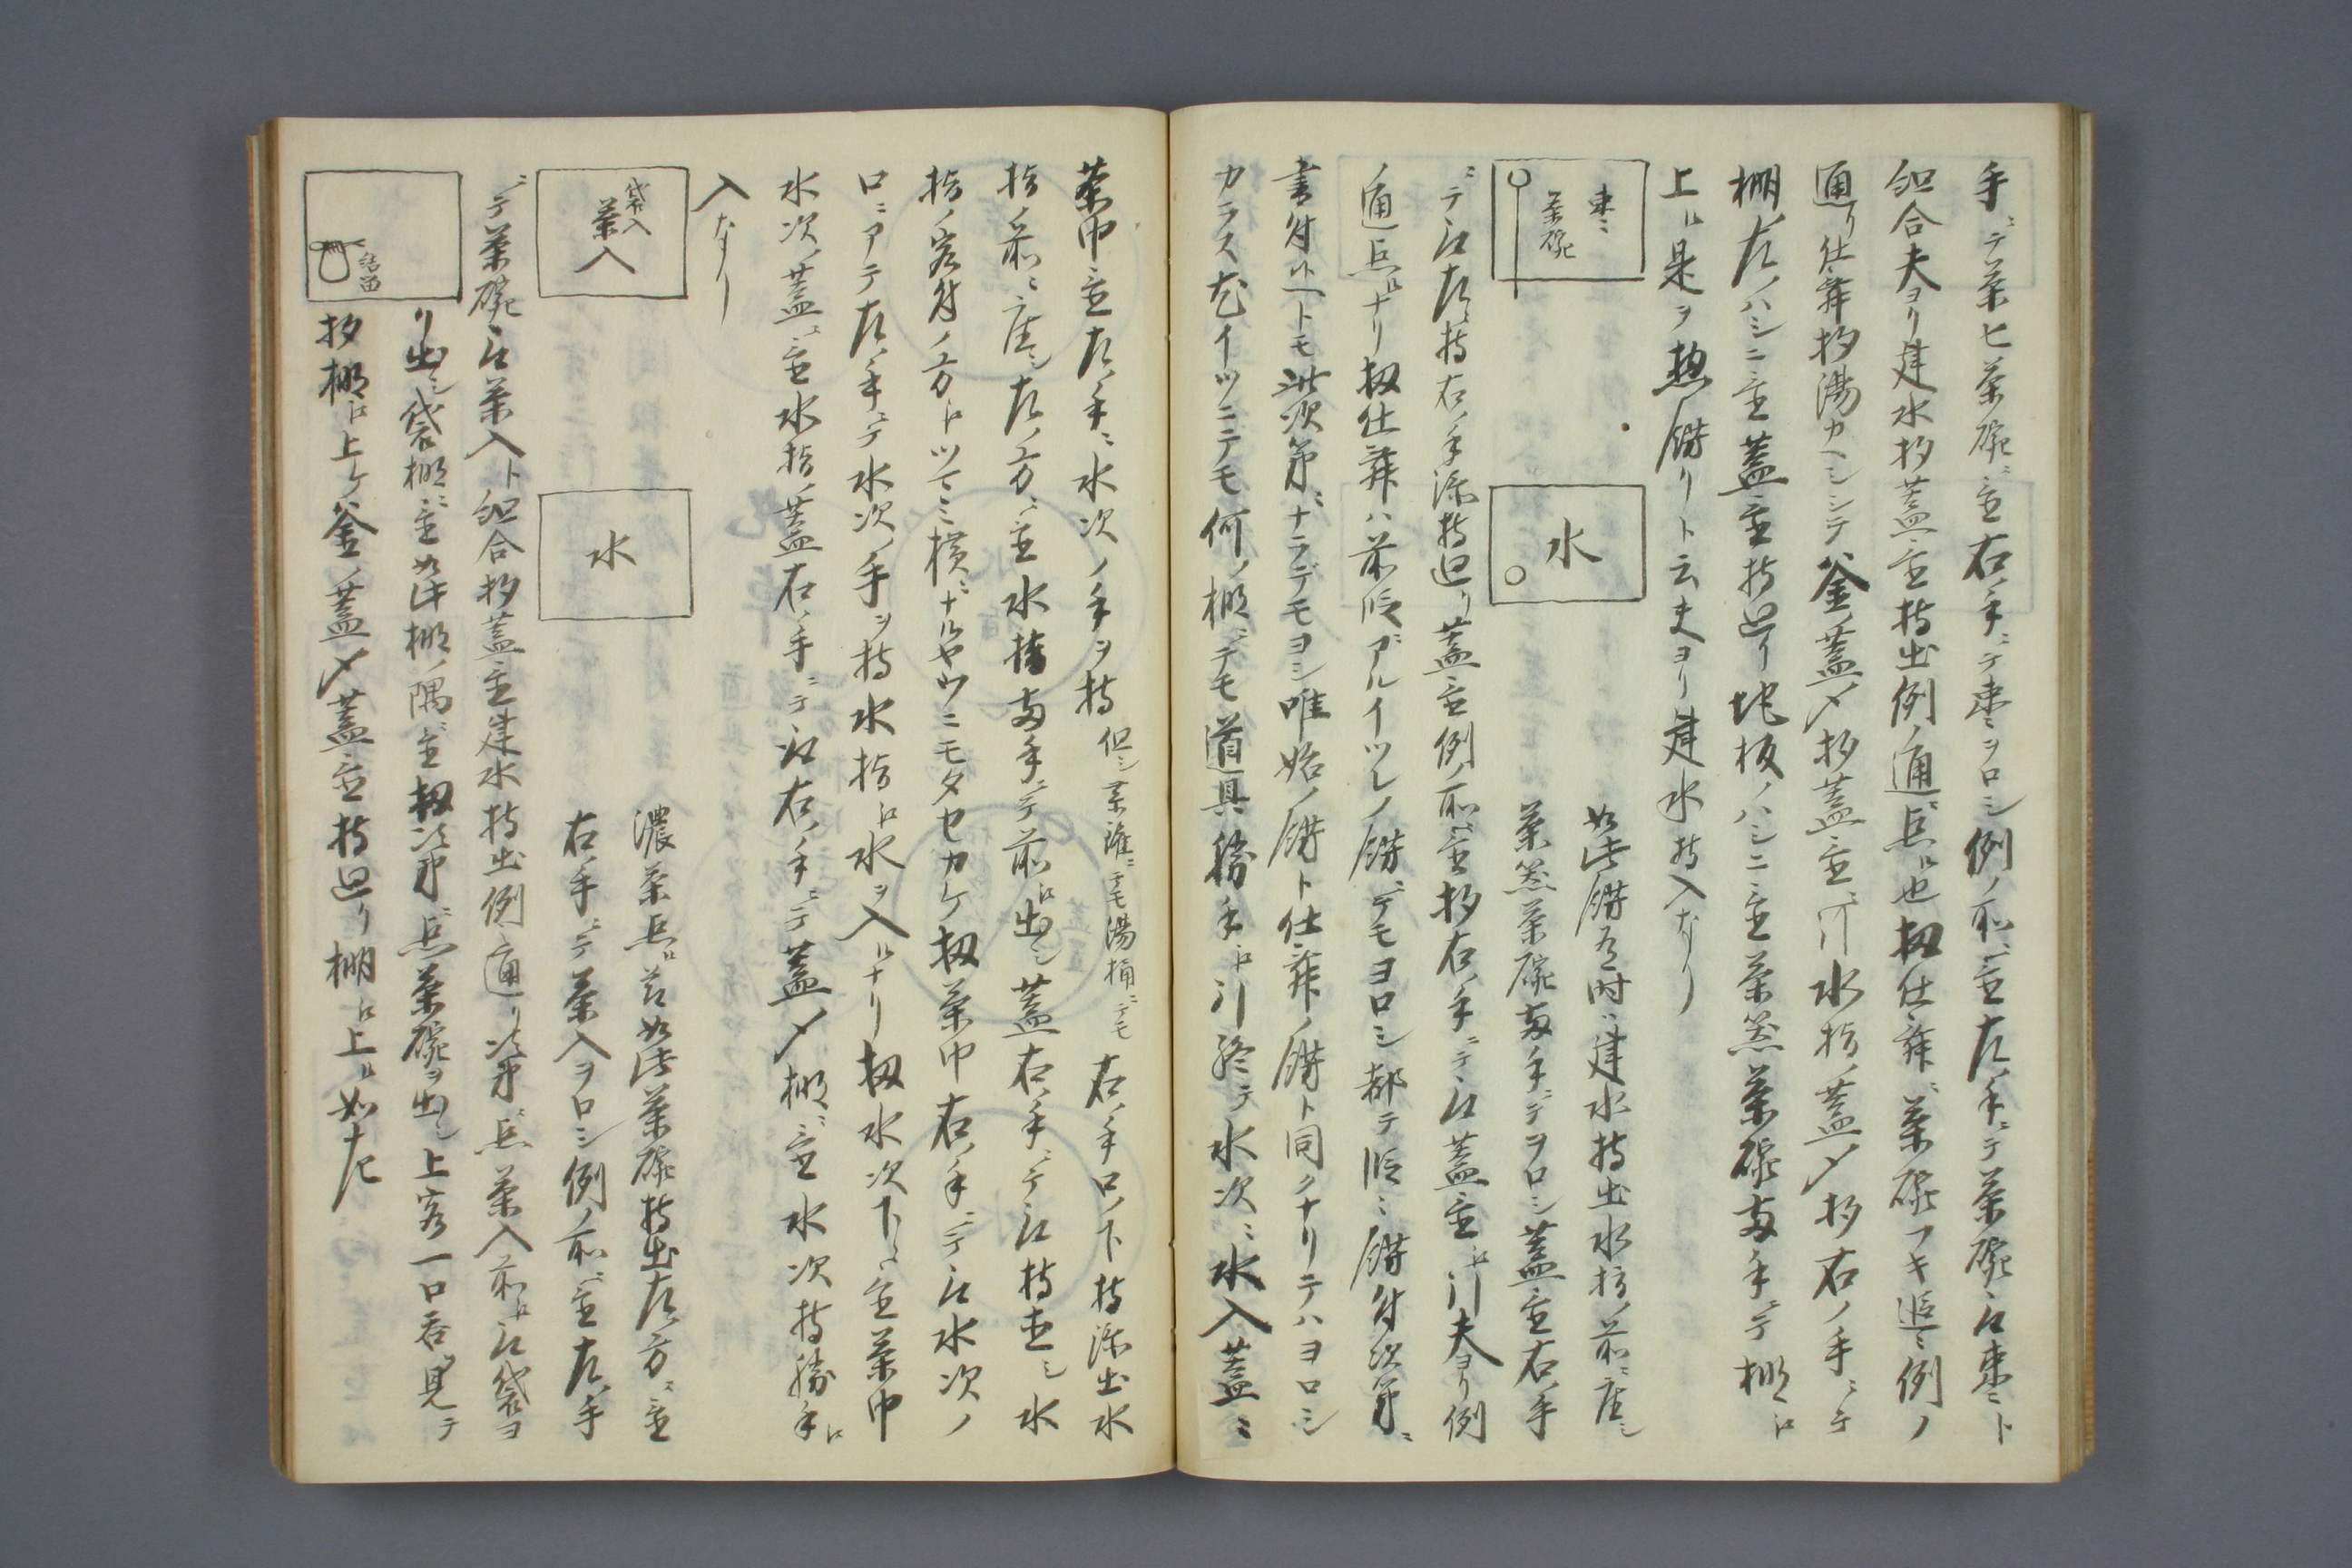 手ニテ茶ヒ茶碗ニ置右ノ手ニテ棗ヲロシ例ノ所ニ置左ノ手ニテ茶碗ヲ取棗ト
組合夫ヨリ建水杓蓋置持出例ノ通ニ点ル也扨仕舞ニ茶碗フキ追々例ノ
通リ仕舞杓湯カヘシシテ釜ノ蓋〆杓蓋置ニ引水指ノ蓋〆杓右ノ手ニテ
棚ノ左ノハシニ置蓋置持廻リ地板ノハシニ置茶筅茶碗両手ニテ棚エ
上ル是ヲ惣餝リト云夫ヨリ建水持入なり
棗
茶碗
水
如此餝有時ハ建水持出水指ノ前ニ座シ
茶筅茶碗両手ニテヲロシ蓋置右ノ手
ニテ取左ニ持右ノ手添持廻リ蓋置例ノ所ニ置杓右ノ手ニテ取蓋置エ引夫ヨリ例
ノ通点ルナリ扨仕舞ハ前段アルイツレノ餝ニテモヨロシ都テ段々餝付次第ニ
書付候ヘトモ此次第ニナラデモヨシ唯始ノ餝ト仕舞ノ餝ト同クナリテハヨロシ
カラス尤イツニテモ何ノ棚ニテモ道具勝手エ引終テ水次ニ水入蓋ニ
茶巾置左ノ手ニ水次ノ手ヲ持但シ茶道ニテモ湯桶ニテモ右ノ手口ノ下持添出水
指ノ前ニ座シ左ノ方ニ置水指両手ニテ前エ出シ蓋右ノ手ニテ取持直シ水
指ノ客付ノ方エツマミ横ニナルヤウニモタセカケ扨茶巾右ノ手ニテ取水次ノ
口ニアテ左ノ手ニテ水次ノ手ヲ持水指エ水ヲ入ルナリ扨水次下ニ置茶巾
水次ノ蓋ニ置水指ノ蓋右ノ手ニテ取右ノ手ニテ蓋〆棚ニ置水次持勝手エ
入なり
袋入
茶入
水
濃茶点ル若如此茶碗持出左ノ方ニ置
右ノ手ニテ茶入ヲロシ例ノ所ニ置左ノ手
ニテ茶碗取茶入ト組合杓蓋置建水持出例ノ通リ次第ニ点茶入前エ取袋ヨ
リ出シ袋棚ニ置如此棚ノ隅ニ置扨次第ニ点茶碗ヲ出シ上客一口呑ヲ見テ
結留
杓棚エ上ケ釜ノ蓋〆蓋置持廻リ棚エ上ル如左